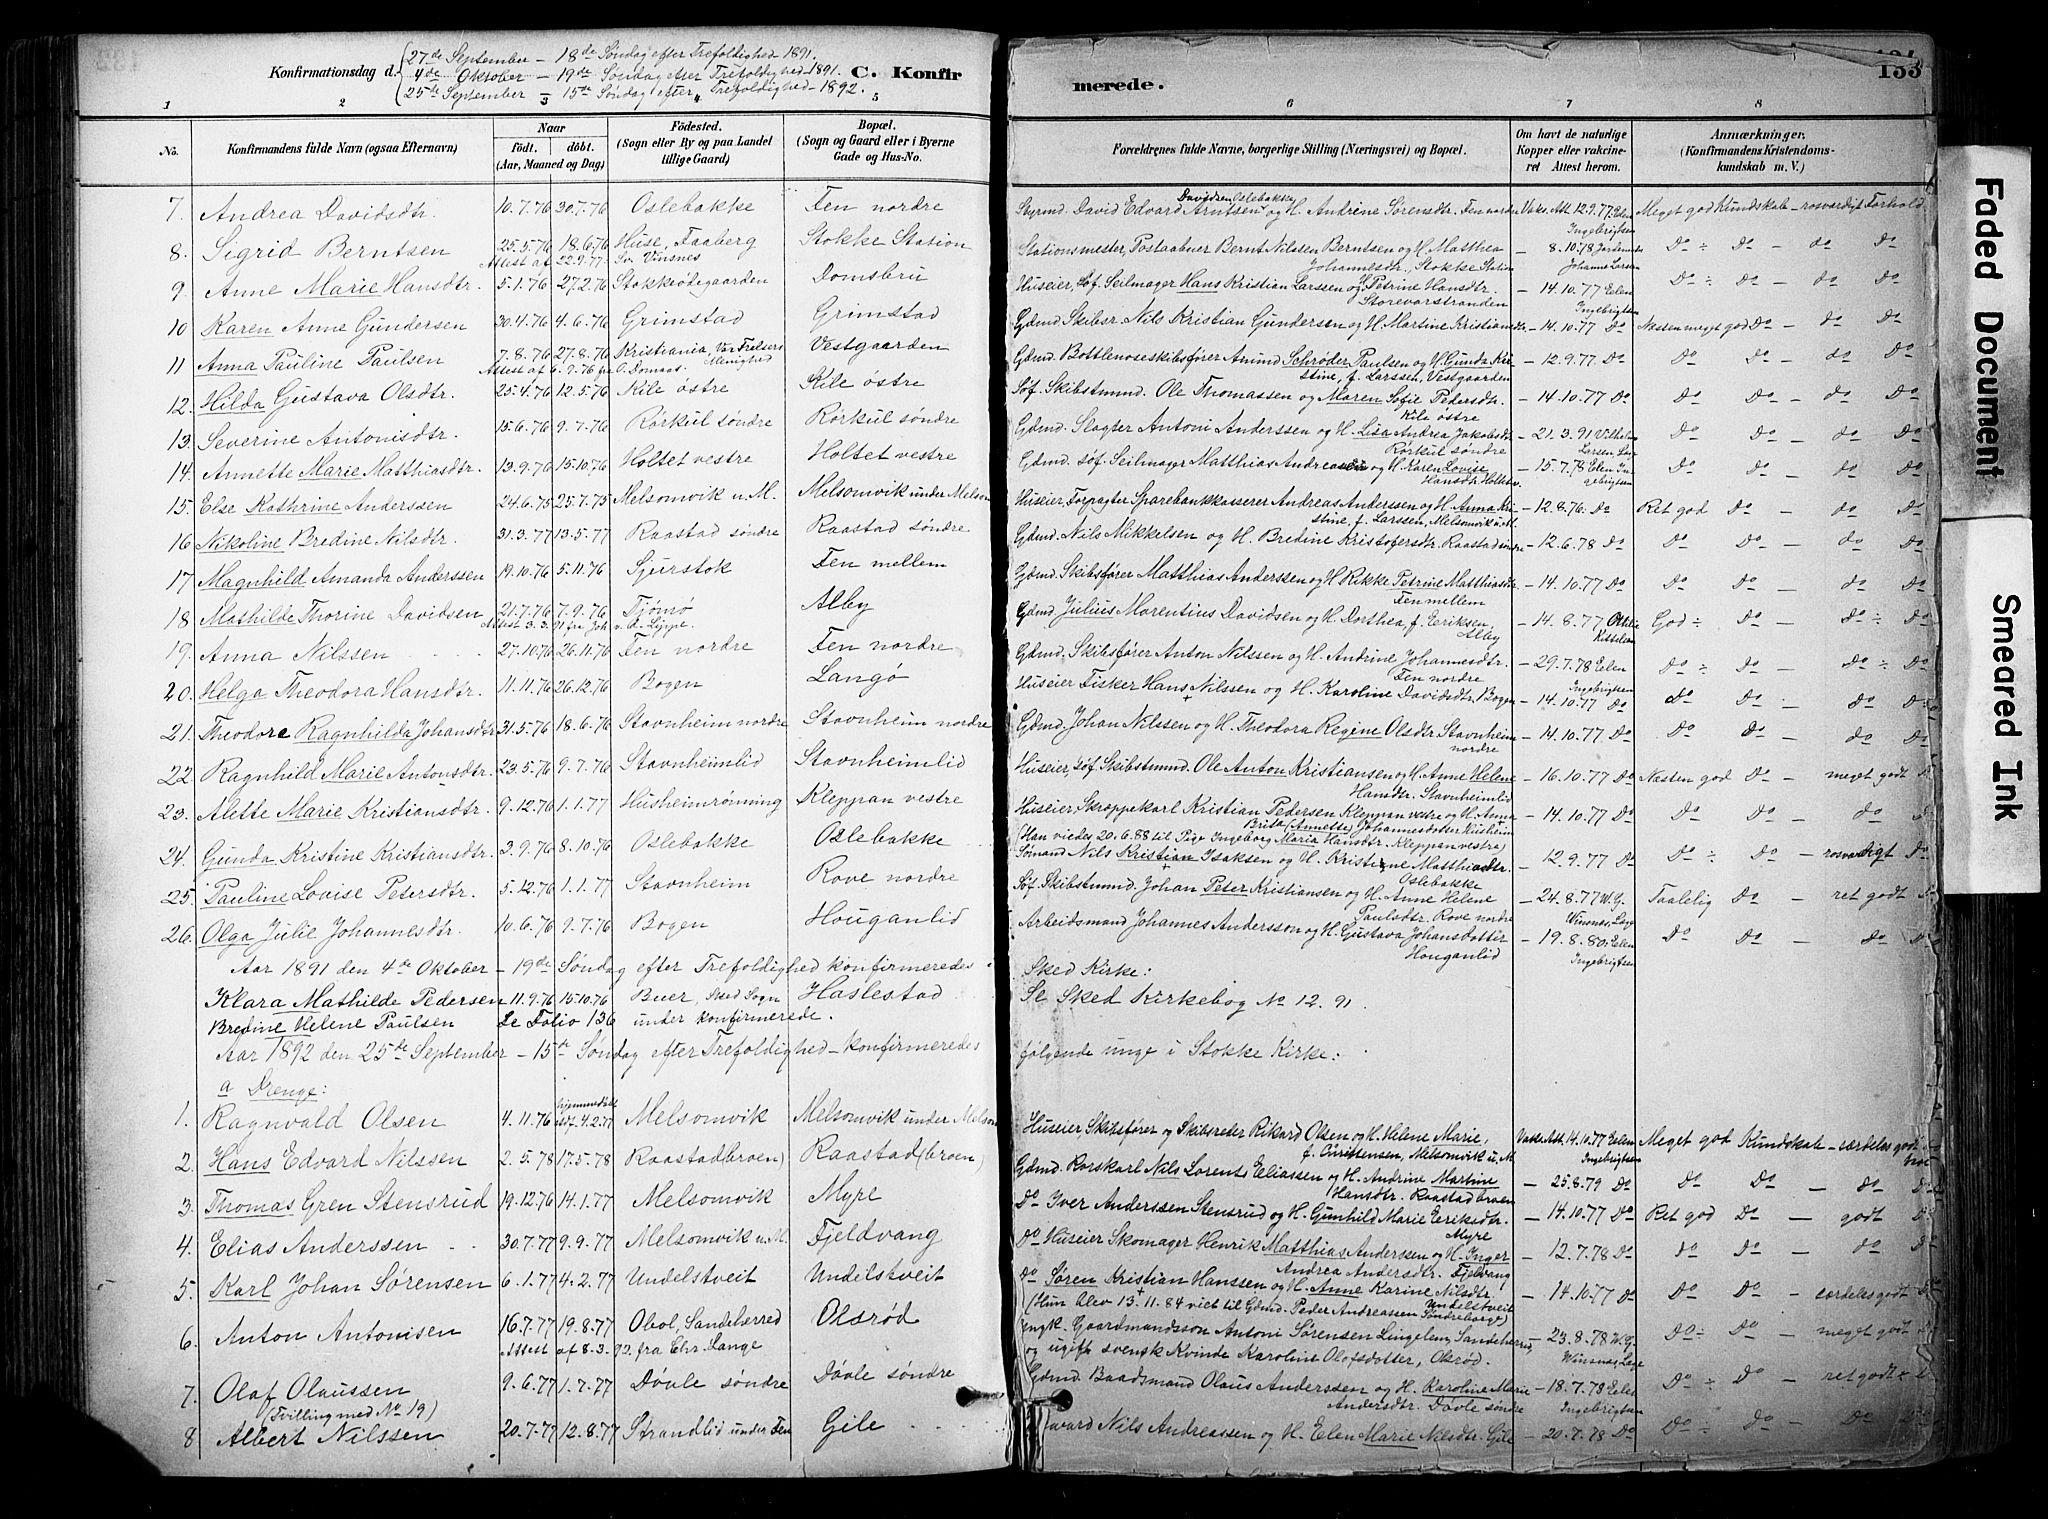 Konfirmationsdag d. 27de September – 18de Søndag efter Trefoldighed 1891.
4de Oktober – 19de Søndag efter Trefoldighed – 1891.
25de September – 15de Søndag efter Trefoldighed – 1892.
C. Konfirmerede.
133
1 2 3 5 6 7 8
No. Konfirmandens fulde Navn (ogsaa Efternavn) Naar født. døbt. (Aar, Maaned og Dag) Fødested. (Sogn eller By og paa Landet tillige Gaard) Bopæl. (Sogn og Gaard eller i Byerne Gade og Hus-No. Forældrenes fulde Navne, borgerlige Stilling (Næringsvei) og Bopæl. Om havt de naturlige Kopper eller vakcineret Attest herom. Anmærkninger. (Konfirmandens Kristendomskundskab m. V.)
7 Andrea Davidsdtr. 10.7.76 30.7.76 Oslebakke Fen nordre Styrmd. David Edvard Arntsen og H. Andrine Sørensdtr. Fen nordre Vaks. Att. 12.9.77 Eelen Ingebrigtsen Meget god Kundskab – rosværdigt Forhold.
8. Sigrid Berntsen 25.5.76 18.6.76 Huse, Faaberg Stokke Station Stationsmester, Postaabner Bernt Nilsen Berntsen og H. Matthea – 8.10.78 Do ÷ Do – do Do
Attest af 22.9.77 Sv. Vinsnes Johannesdtr., Stokke Station Johanne Larsen
9 Anne Marie Hansdtr. 5.1.76 27.2.76 Stokkødegaarden Domsbru Huseier, Søf. Seilmager Hans Kristian Larssen og H. Petrine Hansdtr. – 14.10.77 Eelen Ingebrigtsen Do ÷ Do – do Do
Storevarstranden
10 Karen Anne Gundersen 30.4.76 4.6.76 Grimstad Grimstad Gdmd. Skibsr. Nils Kristian Gundersen og H. Martine Kristiansdtr. – 14.10.77 Do Næsten meget god Do – do Do
11 Anna Pauline Paulsen 7.8.76 27.8.76 Kristiania, Vor Frelsers Menighed Vestgaarden Gdmd. Bottlenoseskibsfører Amund Schrøder Paulsen og H. Gunda Kri- – 12.9.77 Do Do Do – do Do
Attest af 6.9.76 fra O. Domaas stine, f. Larssen, Vestgaarden
12. Hilda Gustava Olsdtr. 25.4.76 12.5.76 Kile østre Kile østre Søf. Skibstmmd. Ole Thomassen og Maren Sofie Pedersdtr. – 14.10.77 Do Do Do – do Do
Kile østre
13. Severine Antonisdtr. 15.6.76 9.7.76 Rørkul søndre Rørkul søndre Gdmd. Slagter Antoni Anderssen og H. Lisa Andrea Jakobsdtr. – 21.3.91 Vilhelm Larsen, Do Do – do Do
Rørkul søndre
14. Annette Marie Matthiasdtr. 13.9.76 15.10.76 Holtet vestre Holtet vestre Gdmd. søf. Seilmager Matthias Andreassen og H. Karen Lovise – 15.7.78 Eelen Ingebrigtsen Do Do – do Do
Hansdtr. Holtet v.
15. Else Kathrine Anderssen 24.6.75 25.7.75 Melsomvik u. M. Melsomvik under Melsom Huseier Forpagter Sparebankkasserer Andreas Anderssen og H. Anna Kri- – 12.8.76 Do Ret god Do – do Do
stine, f. Larssen, Melsomvik u. M.
16 Nikoline Bredine Nilsdtr. 31.3.77 13.5.77 Raastad søndre Raastad søndre Gdmd. Nils Mikkelsen og H. Bredine Kristofersdtr. Raastad søndre – 12.6.78 Do Do Do – do Do
17 Magnhild Amanda Anderssen 19.10.76 5.11.76 Sjurstok Fen mellem Gdmd. Skibsfører Matthias Anderssen og H. Rikke Petrine Matthiasdtr. – 14.10.77 Do Do Do do Do
Fen mellem
18 Mathilde Thorine Davidsen 21.7.76 7.9.76 Tjømø Alby Gdmd. Julius Marentius Davidsen og H. Dorthea, f. Eeriksen, – 14.8.77 Othilie Kittelsen God ÷ Do – do ÷ Do
Attest 3.3.91 fra Joh. v. d. Lippe. Alby
19. Anna Nilssen 27.10.76 26.11.76 Fen nordre Fen nordre Gdmd. Skibsfører Anton Nilssen og H. Andrine Johannesdtr. – 29.7.78 Eelen Ingebrigtsen Do ÷ Do – do ÷ Do
Fen nordre
20. Helga Theodora Hansdtr. 11.11.76 26.12.76 Bogen Langø Huseier Fisker Hans Nilssen og H. Karoline Davidsdtr., Bogen – 14.10.77 Do Do Do – do Do
21. Theodore Ragnhilda Johansdtr 31.5.76 18.6.76 Stavnheim nordre Stavnheim nordre Gdmd. Johan Nilssen og H. Theodora Regine Olsdtr Stavnheim – 14.10.77 Do Do Do – do Do
nordre
22. Ragnhild Marie Antonsdtr. 23.5.76 9.7.76 Stavnheimlid Stavnheimlid Huseier, søf. Skibstmmd. Ole Anton Kristiansen og H. Anne Helene – 16.10.77 Do Næsten god Do – meget godt Do
Hansdtr. Stavnheimlid
23. Alette Marie Kristiansdtr. 9.12.76 1.1.77 Husheimrønning Kleppan vestre Huseier, Skroppekarl Kristian Pedersen Kleppan vestre og H. Anna – 14.10.77 Do Do Do – Do
Brita (Annette) Johannesdotter Husheim
(Han viedes 20.6.88 til Pige Ingeborg Maria Hansdtr. Kleppan vestre)
24. Gunda Kristine Kristiansdtr. 3.9.76 8.10.76 Oslebakke Oslebakke Sømand Nils Kristian Isaksen og H. Kristine Matthiasdtr. – 12.9.77 Do Do ÷ Do – rosværdigt Do
Oslebakke
25. Pauline Lovise Petersdtr. 5.12.76 1.1.77 Stavnheim Rove nordre Søf. Skibstmmd. Johan Peter Kristiansen og H. Anne Helene – 24.8.77 W.G. Winsnes, Læge Taalelig Do – ret godt Do
Paulsdtr. Rove nordre
26. Olga Julie Johannesdtr. 10.6.76 9.7.76 Bogen Houganlid Arbeidsmand Johannes Andersson og H. Gustava Johansdotter – 19.8.80 Eelen Ingebrigtsen Do Do – do Do
Houganlid
Aar 1891 den 4de Oktober – 19de Søndag efter Trefoldighed konfirmeredes i Sked Kirke:
Klara Mathilde Pedersen 11.9.76 15.10.76 Buer, Sked Sogn Haslestad Se Sked Kirkebog No 12. 91.
Bredine Helene Paulsen Se Folio 136 under konfirmerede.
Aar 1892 den 25de September – 15de Søndag efter Trefoldighed – konfirmeredes følgende unge i Stokke Kirke:
a Drenge:
1. Ragnvald Olsen 4.11.76 hjemmedøbt 4.2.77 Melsomvik Melsomvik under Melsom Huseier, Skibsfører og Skibsreder Rikard Olsen og H. Helene Marie, Vaks. Att. 14.10.77 Eelen Ingebrigtsen Meget god Kundskab – særdeles godt
f. Christensen, Melsomvik u. M.
2. Hans Edvard Nilssen 2.5.78 17.5.78 Raastad (broen) Raastad (broen) Gdmd. Rorskarl Nils Lorents Eliassen og H. Andrine Martine – 25.8.79 Do Do Do – do Do
Hansdtr. Raastadbroen
3. Thomas Gren Stensrud 19.12.76 14.1.77 Melsomvik Myre Do Iver Anderssen Stensrud og H. Gunhild Marie Eeriksdtr. – 14.10.77 Do Ret god Do – godt Do
Myre
4. Elias Anderssen 30.7.77 9.9.77 Melsomvik u. M. Fjeldvang Do Huseier Skomager Henrik Matthias Anderssen og H. Inger – 12.7.78 Do Do Do – do Do
Andrea Andersdtr. Fjeldvang
5. Karl Johan Sørensen 6.1.77 4.2.77 Undelstveit Undelstveit Do Søren Kristian Hanssen og H. Anne Karine Nilsdtr. – 14.10.77 Do Do Do – særdeles godt Do
Undelstveit
(Hun blev 13.11.84 viet til Gdmd. Peder Andreassen Søndreborge)
6. Anton Antonisen 16.7.77 19.8.77 Obol, Sandeherred Olsrød Ungk. Gaardmandssøn Antoni Sørensen Lingelem, Sandeherred, – 23.8.78 W.G. Winsnes, Læge Do ÷ Do – meget godt Do
Attest af 8.3.92 fra Chr. Lange og ugift svensk Kvinde Karoline Olofsdotter, Olsrød.
7. Olaf Olaussen 9.6.77 1.7.77 Døvle søndre Døvle søndre Gdmd. Baadsmand Olaus Anderssen og H. Karoline Marie – 18.7.78 Eelen Ingebrigtsen Do ÷ Do – ret godt
(Tvilling med No 19) Andersdtr. Døvle søndre
8 Albert Nilssen 20.7.77 12.8.77 Strandlid under Fen Gile Nils Andreassen og H. Eelen Marie Nilsdtr. Gile – 20.7.78 Do Do ÷ Do – Do
Faded Document
Smeared Ink